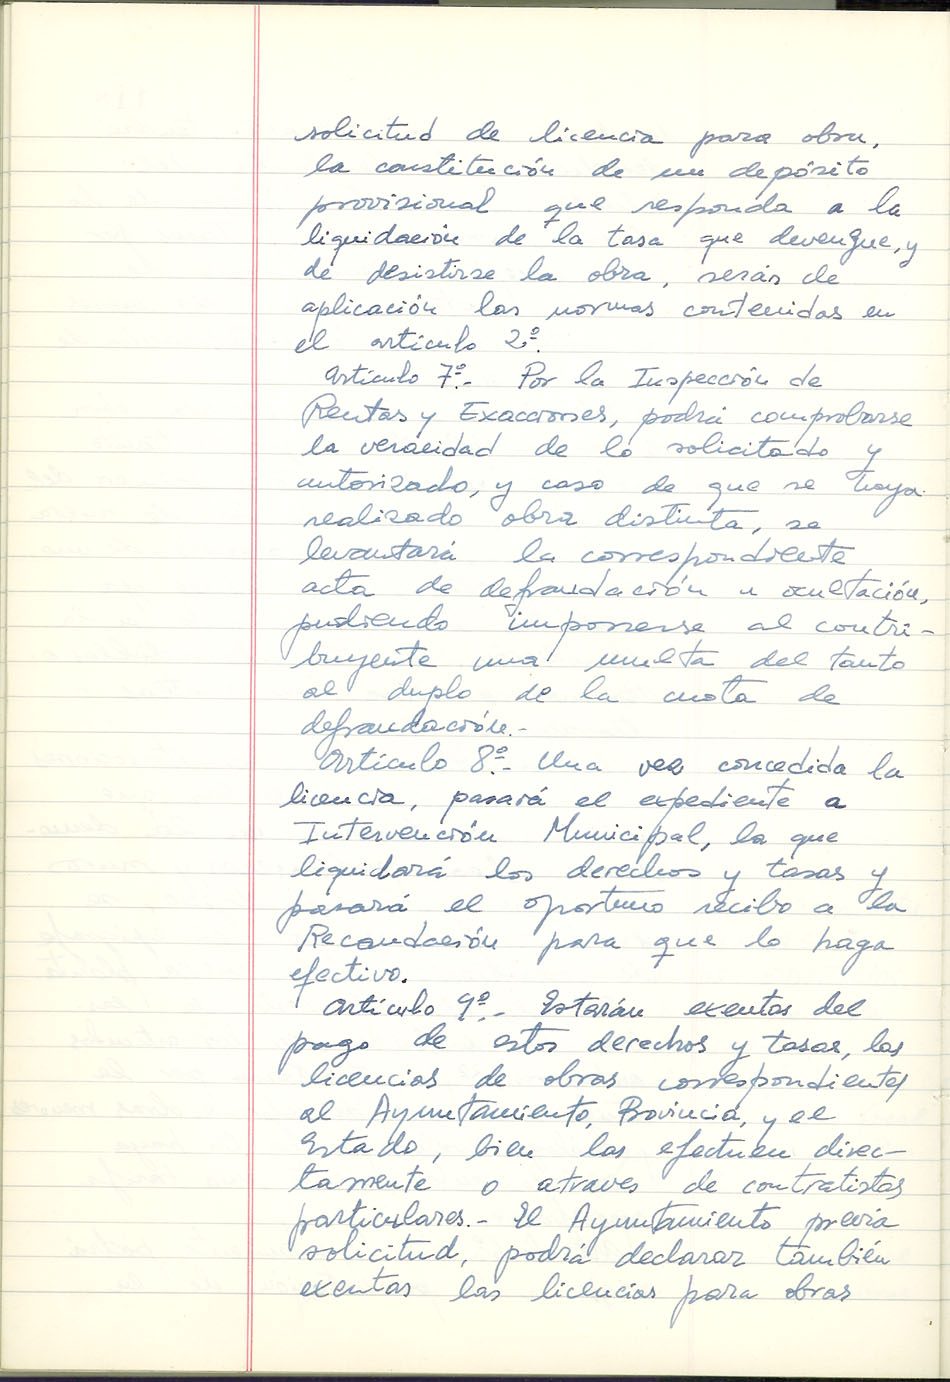 solicitud de licencia para obra,
la constitución de un depósito
provisional que responda a la
liquidación de la tasa que devengue, y
de desistirse la obra, serán de
aplicación las normas contenidas en
el artículo 2º.
Artículo 7º.- Por la Inspección de
Rentas y Exacciones, podrá comprobarse
la veracidad de lo solicitado y
autorizado, y caso de que se haya
realizado obra distinta, se
levantará la correspondiente
acta de defraudación u ocultación,
pudiendo imponerse al contri-
buyente una multa del tanto
al duplo de la cuota de
defraudación.-
Artículo 8º.- Una vez concedida la
licencia, pasará el expediente a
Intervención Municipal, la que
liquidará los derechos y tasas y
pasará el oportuno recibo a la
Recaudación para que lo haga
efectivo.
Artículo 9º.- Estarán exentas del
pago de estos derechos y tasas, las
licencias de obras correspondientes
al Ayuntamiento, Provincia, y el
Estado, bien las efectuen direc-
tamente o atraves de contratistas
particulares.- El Ayuntamiento previa
solicitud, podrá declarar también
exentas las licencias para obras